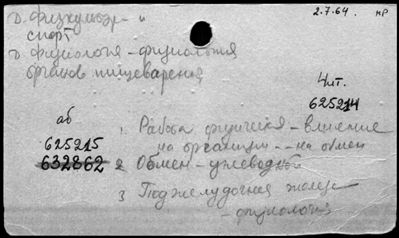 2.7.64. нр
D. Физкультур- "
спорт
D. Физиология - физиология
органов пищеварения
4 ит.
625214
аб
1. Работа физическая - влияние
625215 на организм - - на обмен
632862 2 Обмен - углеводной
3 Поджелудочная железа
- физиология